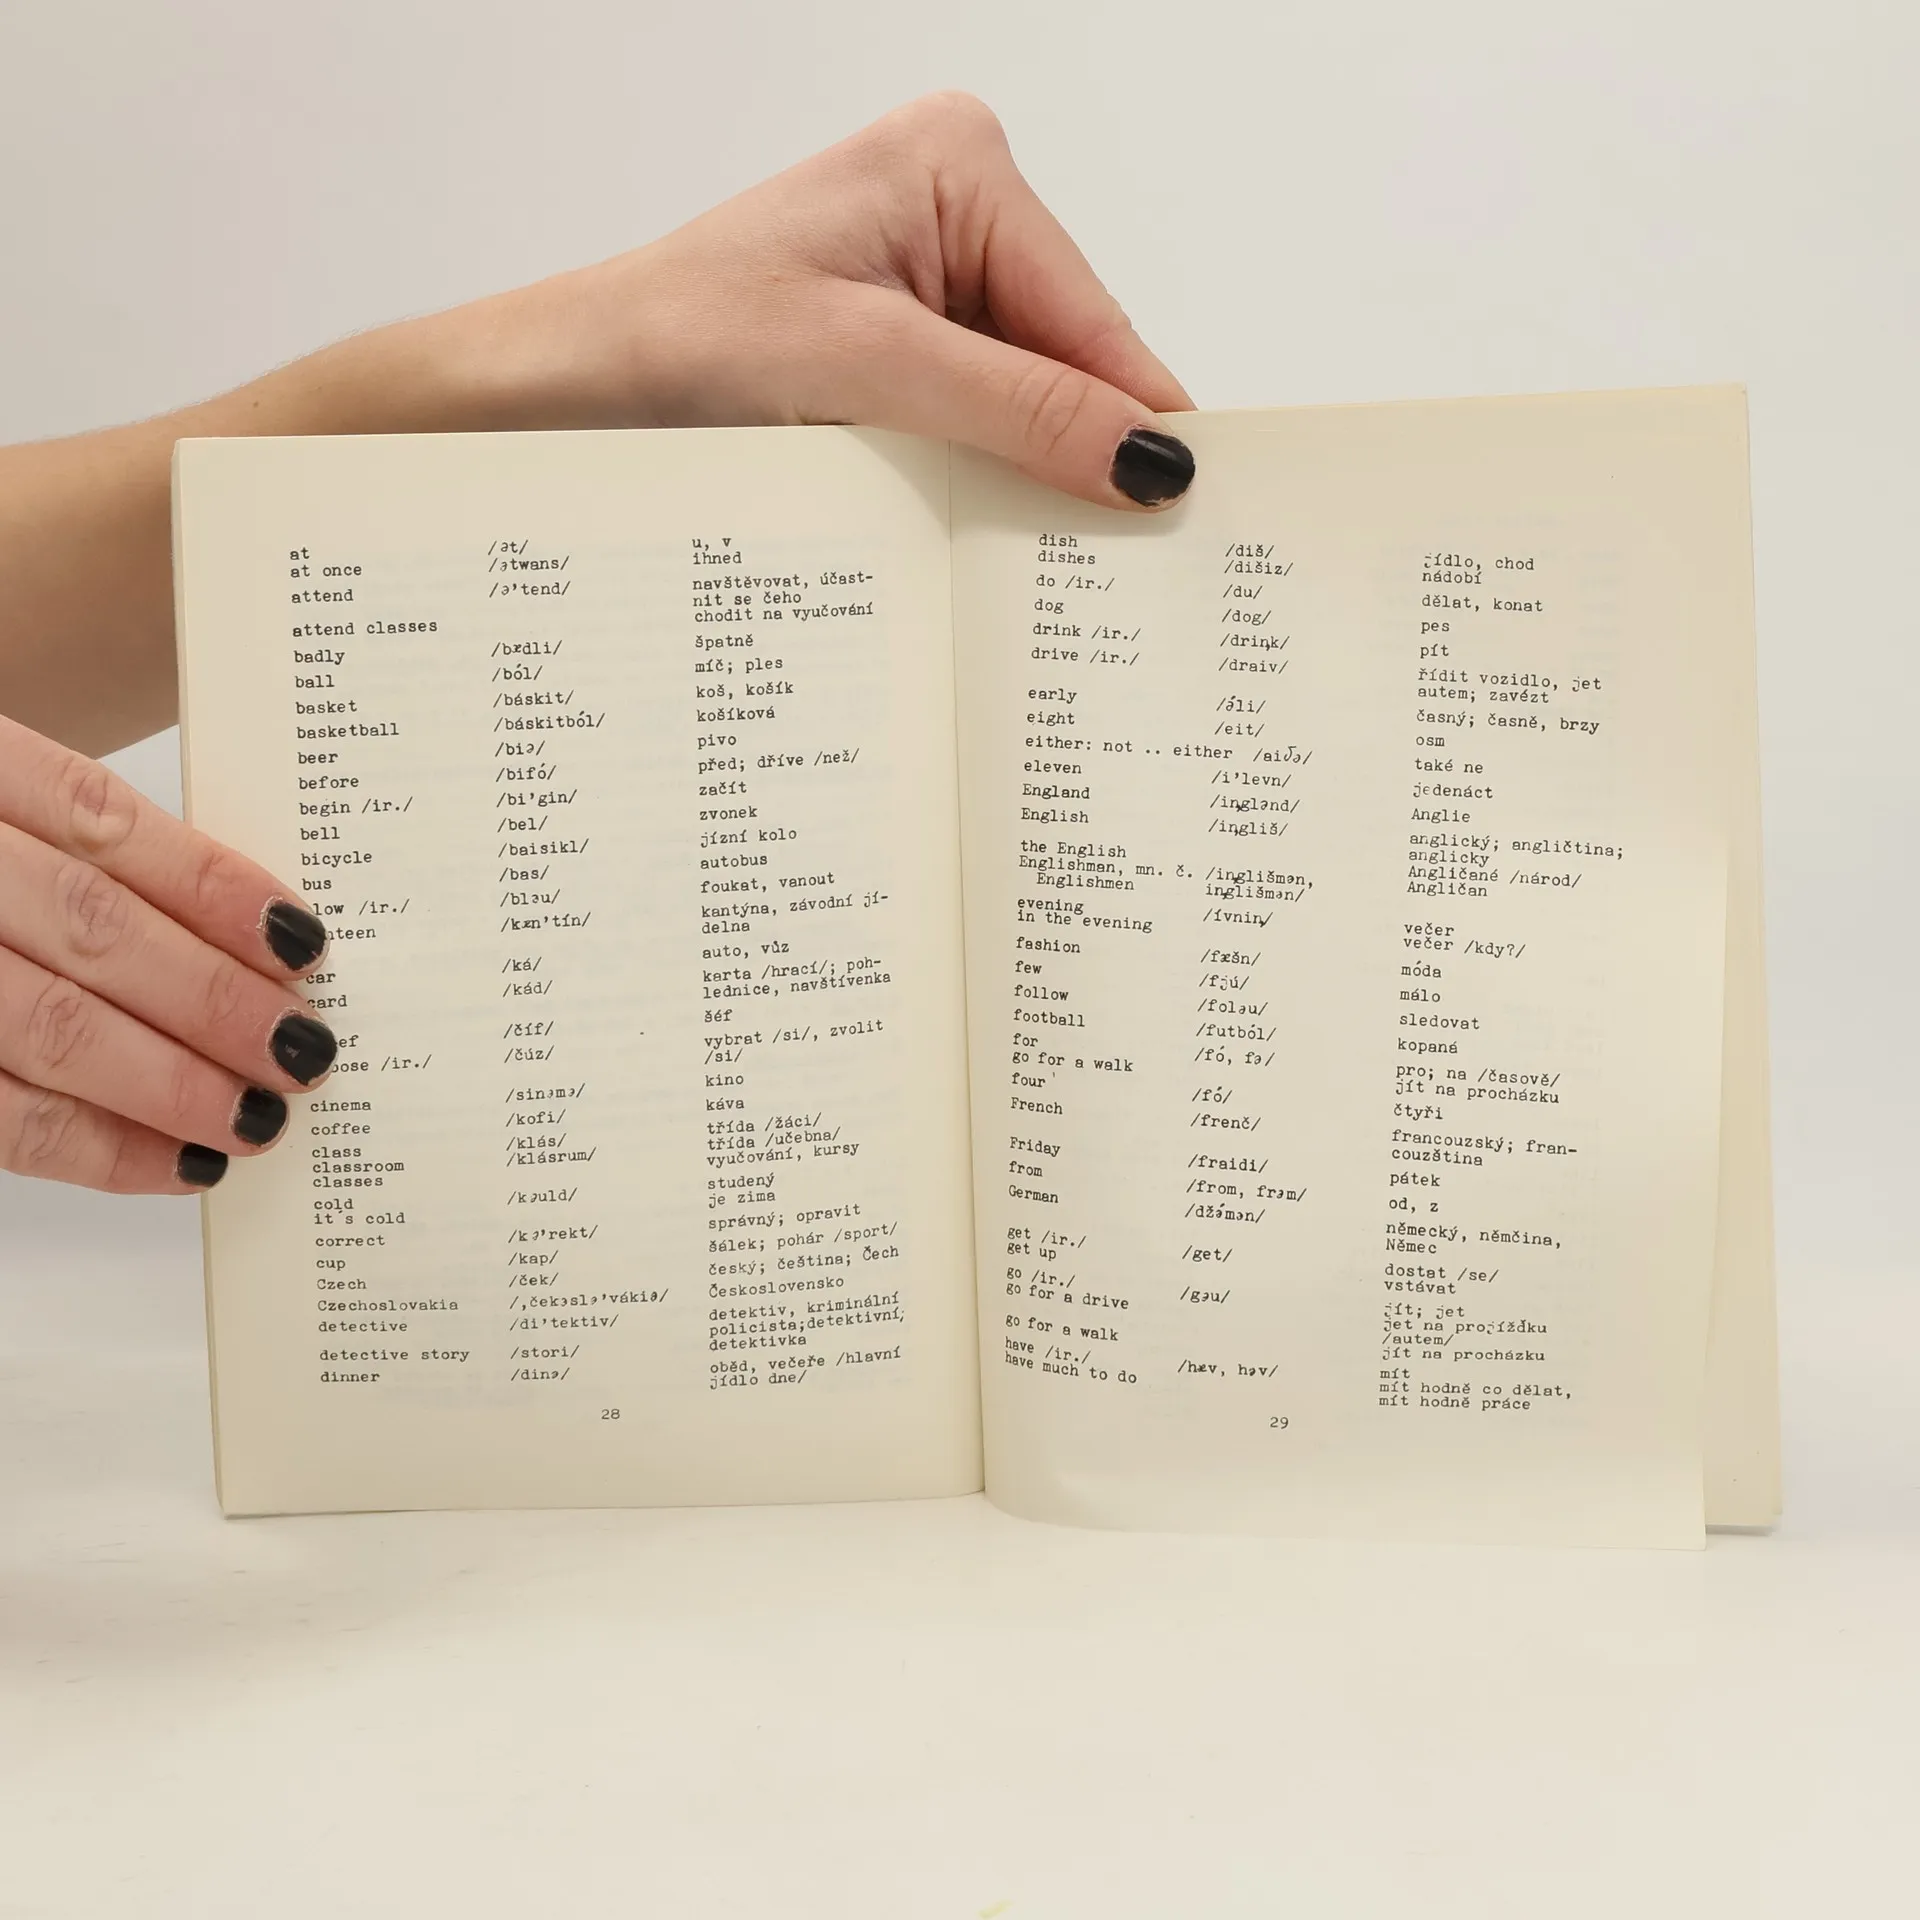 at /ət/ u, v
at once /ətwans/ ihned
attend /ə'tend/ navštěvovat, účast-
nit se čeho
attend classes chodit na vyučování
badly /bædli/ špatně
ball /ból/ míč; ples
basket /báskit/ koš, košík
basketball /báskitból/ košíková
beer /biə/ pivo
before /bifó/ před; dříve /než/
begin /ir./ /bi'gin/ začít
bell /bel/ zvonek
bicycle /baisikl/ jízní kolo
bus /bas/ autobus
low /ir./ /bləu/ foukat, vanout
nteen /kæn'tín/ kantýna, závodní jí-
delna
car /ká/ auto, vůz
card /kád/ karta /hrací/; poh-
lednice, navštívenka
ef /číf/ šéf
oose /ir./ /čúz/ vybrat /si/, zvolit
/si/
cinema /sinəmə/ kino
coffee /kofi/ káva
class /klás/ třída /žáci/
classroom /klásrum/ třída /učebna/
classes vyučování, kursy
cold /kəuld/ studený
it's cold je zima
correct /kə'rekt/ správný; opravit
cup /kap/ šálek; pohár /sport/
Czech /ček/ český; čeština; Čech
Czechoslovakia /,čekəslə'vákiə/ Československo
detective /di'tektiv/ detektiv, kriminální
policista;detektivní;
detective story /stori/ detektivka
dinner /dinə/ oběd, večeře /hlavní
jídlo dne/
28
dish /diš/ jídlo, chod
dishes /dišiz/ nádobí
do /ir./ /du/ dělat, konat
dog /dog/ pes
drink /ir./ /driŋk/ pít
drive /ir./ /draiv/ řídit vozidlo, jet
autem; zavézt
early /ə́li/ časný; časně, brzy
eight /eit/ osm
either: not .. either /aiðə/ také ne
eleven /i'levn/ jedenáct
England /iŋglənd/ Anglie
English /iŋgliš/ anglický; angličtina;
anglicky
the English Angličané /národ/
Englishman, mn. č. /iŋglišmən, Angličan
Englishmen iŋglišmən/
evening /ívniŋ/ večer
in the evening večer /kdy?/
fashion /fæšn/ móda
few /fjú/ málo
follow /foləu/ sledovat
football /futból/ kopaná
for /fó, fə/ pro; na /časově/
go for a walk jít na procházku
four /fó/ čtyři
French /frenč/ francouzský; fran-
couzština
Friday /fraidi/ pátek
from /from, frəm/ od, z
German /džə́mən/ německý, němčina,
Němec
get /ir./ /get/ dostat /se/
get up vstávat
go /ir./ /gəu/ jít; jet
go for a drive jet na projížďku
/autem/
go for a walk jít na procházku
have /ir./ /hæv, həv/ mít
have much to do mít hodně co dělat,
mít hodně práce
29